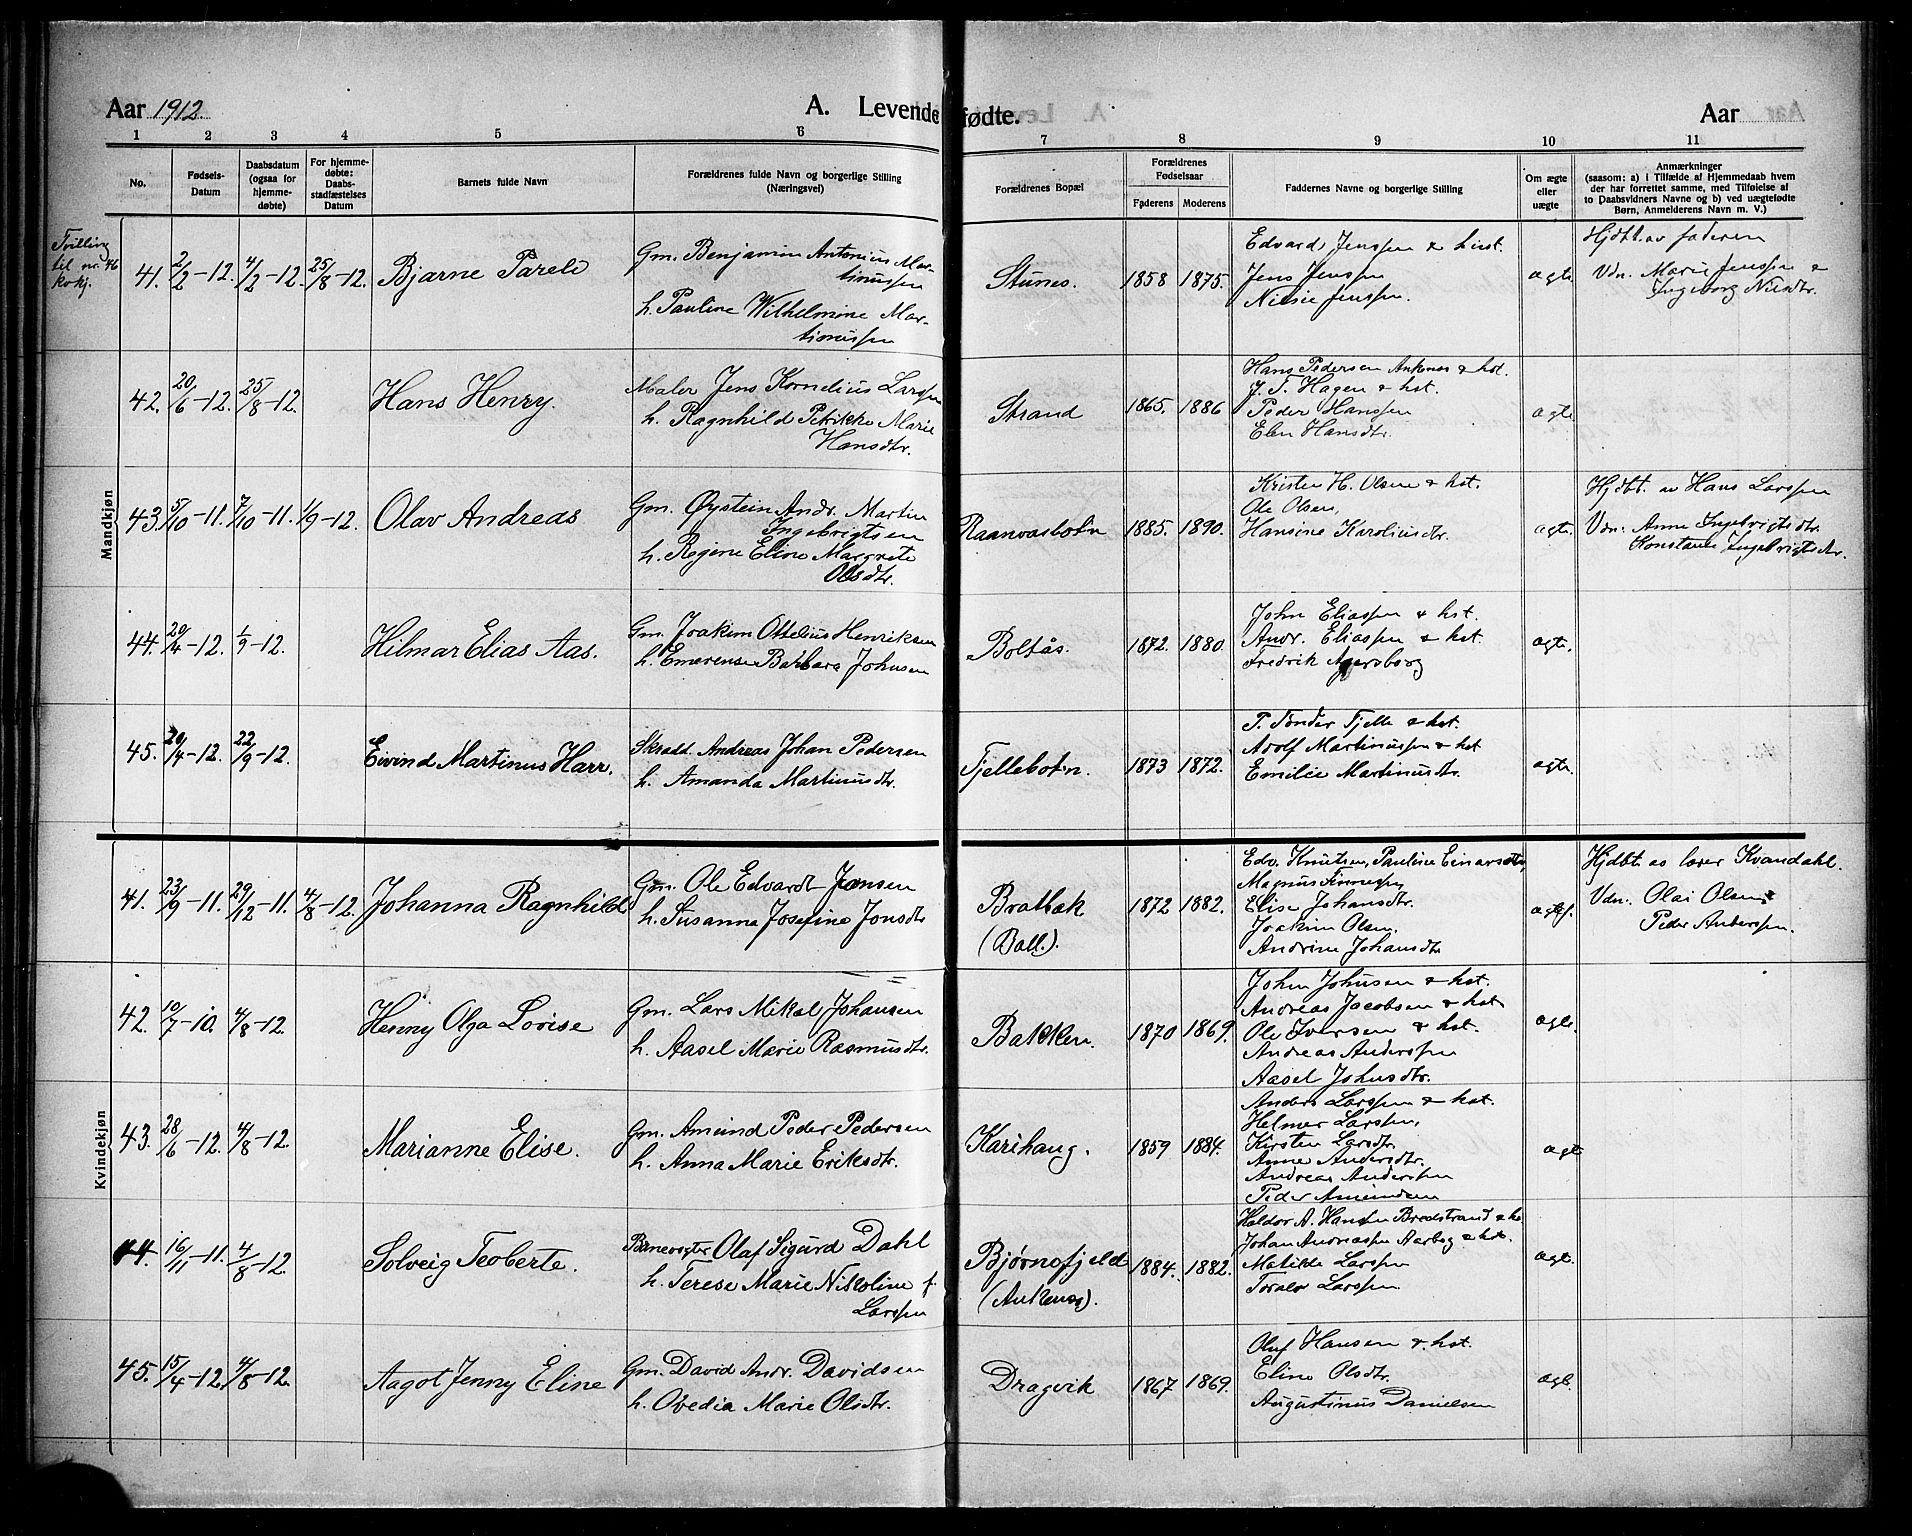 Aar 1912.
A. Levendefødte.
Aar
1 2 3 4 5 6 7 8 9 10 11
No.
Fødsels-
Datum
Daabsdatum
(ogsaa for
hjemme-
døbte)
For hjemme-
døbte:
Daabs-
stadfæstelses
Datum
Barnets fulde Navn
Forældrenes fulde Navn og borgerlige Stilling
(Næringsvei)
Forældrenes Bopæl
Forældrenes
Fødselsaar
Faderens Moderens
Faddernes Navne og borgerlige Stilling
Om ægte
eller
uægte
Anmærkninger
(saasom: a) i Tilfælde af Hjemmedaab hvem
der har forrettet samme, med Tilføielse af
to Daabsvidners Navne og b) ved uægtefødte
Børn, Anmelderens Navn m. V.)
Mandkjøn
Tvilling
til nr. 46
kvkj.
41. 2/2-12. 4/2-12. 25/8-12. Bjarne Parele
Gm. Benjamin Antonius Mar-
tinussen
h. Pauline Wilhelmine Mar-
tinussen
Stunes. 1858 1875.
Edvard Jenssen & hust.
Jens Jenssen
Nilsie Jenssen.
ægte
Hjdbt. av faderen
Vdn. Marie Jenssen &
Ingeborg Nilsdtr.
42. 20/6-12. 25/8-12. Hans Henry.
Maler Jens Kornelius Larssen
h. Ragnhild Petrikke Marie
Hansdtr.
Strand 1865. 1886
Hans Pedersen Ankenes & hst.
J. T. Hagen & hst.
Peder Hanssen
Elen Hansdtr.
ægte
43. 5/10-11. 7/10-11. 1/9-12. Olav Andreas
Gm. Øystein Andr. Martin
Ingebrigtsen
h. Regine Eline Margrete
Olsdtr.
Raanvasbotn 1885. 1890.
Kristen H. Olsen & hst.
Ole Olsen,
Hansine Karoliusdtr.
ægte.
Hjdbt. av Hans Larssen
Vdn: Anne Ingebrigtsdtr.
Konstanse Ingebrigtsdtr.
44. 20/4-12. 1/9-12. Hilmar Elias Aas.
Gm. Joakim Ottelius Henriksen
h. Emerense Barbara Johnsen
Boltås. 1872. 1880.
John Eliassen & hst.
Andr. Eliassen & hst.
Fredrik Agersborg
ægte.
45. 20/4-12. 22/9-12. Eivind Martinus Harr.
Skrædd. Andreas Johan Pedersen
h. Amanda Martinusdtr.
Fjellebotn. 1873 1872.
P. Tønder Fjelle & hst.
Adolf Martinussen & hst
Emilie Martinusdtr.
ægte.
Kvindekjøn
41. 23/9-11. 29/12-11. 4/8-12. Johanna Ragnhild
Gm. Ole Edvardt Jonsen
h. Susanna Josefine Jonsdtr
Bratbak
(Ball.).
1872 1882.
Edv. Knutsen, Pauline Einarsdtr,
Magnus Finnesen
Elise Johansdtr.
Joakim Olsen,
Andrine Johansdtr.
ægtef.
Hjdbt. av lærer Kvandahl.
Vdn. Olai Olsen &
Peder Anderssen.
42. 10/7-10. 4/8-12. Henny Olga Lovise
Gm. Lars Mikal Johansen
h. Aasel Marie Rasmusdtr.
Bakken. 1870 1869.
John Johnsen & hst.
Andreas Jacobsen & hst
Ole Iversen & hst.
Andreas Anderssen
Aasel Johnsdtr.
ægte.
43. 28/6-12. 4/8-12. Marianne Elise.
Gm. Amund Peder Pedersen
h. Anna Marie Eriksdtr.
Karihaug. 1859 1884.
Anders Larssen & hst.
Helmer Larssen,
Kirsten Larsdtr.
Anne Andersdtr.
Andreas Anderssen
Peder Amundsen
ægte
44. 16/11-11. 4/8-12. Solveig Teoberte.
Banevogter Olaf Sigurd Dahl
h. Terese Marie Nikoline f.
Larssen
Bjørnefjeld
(Ankenes).
1884. 1882.
Haldor A. Hanssen Bredstrand & hs
Johan Andreassen Aarbog & hst.
Matilde Larssen
Toralv Larssen
ægte.
45. 15/4-12. 4/8-12. Aagot Jenny Eline
Gm. David Andr. Davidsen
h. Ovedia Marie Olsdtr.
Dragvik 1867 1869.
Oluf Hansen & hst.
Eline Olsdtr.
Augustinus Danielsen
ægt.